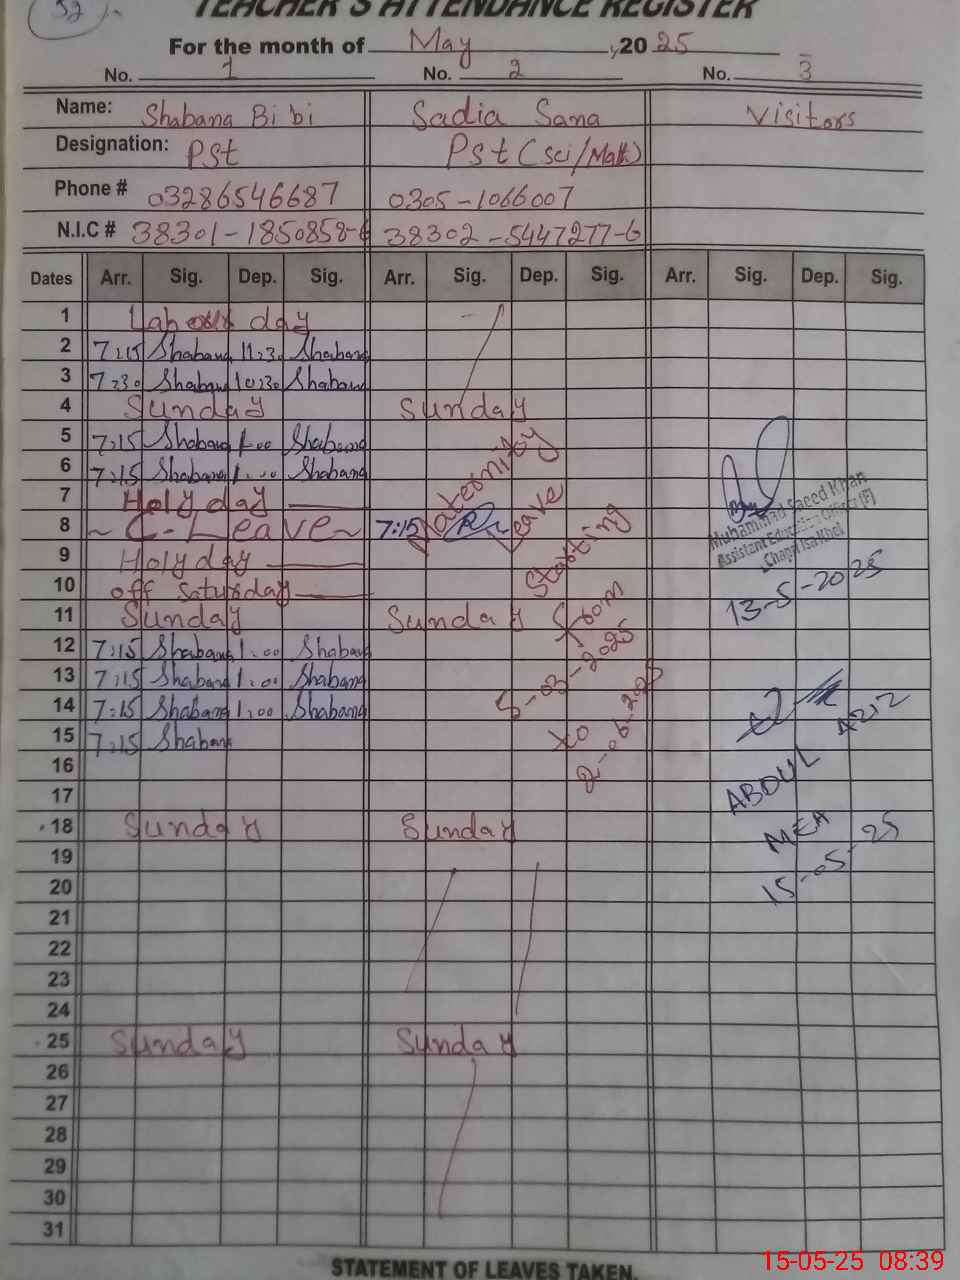 52
TEACHER'S ATTENDANCE REGISTER
For the month of May, 2025
No. 1 No. 2 No. 3
Name: Shabana Bibi Sadia Sana Visitors
Designation: Pst Pst (Sci/Math)
Phone # 03286546687 0305-1066007
N.I.C # 38301-1850858-6 38302-5447277-6
Dates Arr. Sig. Dep. Sig. Arr. Sig. Dep. Sig. Arr. Sig. Dep. Sig.
1 Labour day
2 7:15 Shabana 11:30 Shabana
3 7:30 Shabana 10:30 Shabana
4 Sunday Sunday
5 7:15 Shabana 1:00 Shabana
6 7:15 Shabana 1:00 Shabana
7 Holy day
8 C-Leave 7:15
9 Holy day
10 off Saturday
11 Sunday Sunday
12 7:15 Shabana 1:00 Shabana
13 7:15 Shabana 1:00 Shabana
14 7:15 Shabana 1:00 Shabana
15 7:15 Shabana
16
17
18 Sunday Sunday
19
20
21
22
23
24
25 Sunday Sunday
26
27
28
29
30
31
Maternity
Leave
Starting
from
5-03-2025
to
2-06-2025
Muhammad Saeed Khan
Assistant Education Officer (F)
Chapri Isa Khel
13-5-2025
ABDUL AZIZ
MEA
15-05-25
STATEMENT OF LEAVES TAKEN.
15-05-25 08:39